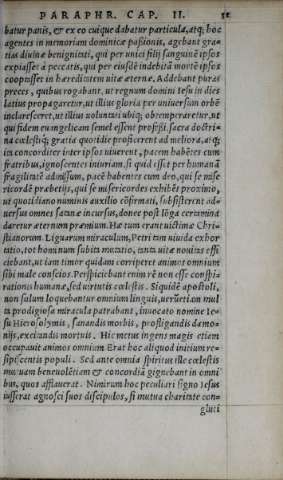 PARAPHR. CAP. II. 51
batur panis, & ex eo cuique dabatur particula, atq; hoc
agentes in memoriam dominicæ paßionis, agebant gra-
tias diuinæ benignitati, qui per unici filij sanguinē ipsos
expiasset à peccatis, qui per eiusdē indebitā mortē ipsos
cooptasset in hæreditatem uitæ æternæ. Addebant puras
preces, quibus rogabant, ut regnum domini Iesu in dies
latius propagaretur, ut illius gloria per uniuersum orbē
inclaresceret, ut illius uoluntati ubiq; obtemperaretur, ut
qui fidem euangelicam semel essent profeßi, sacra doctri-
na cœlestiq; gratia quotidie proficerent ad meliora, atq;
ita concorditer inter ipsos uiuerent, pacem habētes cum
fratribus, ignoscentes iniuriam, si quid esset per humanā
fragilitatē admissum, pacē habentes cum deo, qui se mise
ricordē præbet ijs, qui se misericordes exhibēt proximo,
ut quotidiano numinis auxilio cōfirmati, subsisterent ad-
uersus omnes satanæ incursus, donec post lōga certamina
daretur æternum præmium. Hæ tum erant uictimæ Chri-
stianorum. Linguarum miraculum, Petri tam niuida exhor
tatio, tot hominum subita mutatio, tanta uitæ nouitas effi
ciebant, ut iam timor quidam corriperet animos omnium
sibi male conscios. Perspiciebant enim rē non esse conspi-
rationis humanæ, sed uirtutis cœlestis. Siquidē apostoli,
non solum loquebantur omnium linguis, uerūetiam mul
ta prodigiosa miracula patrabant, inuocato nomine Ie-
su Hierosolymis, sanandis morbis, profligandis dæmo-
nijs, excitandis mortuis. Hic metus ingens magis etiam
occupauit animos omnium. Erat hoc aliquod initium re-
sipiscentis populi. Sed ante omnia spiritus ille cœlestis
mutuam beneuolētiam & concordiā gignebant in omni
bus, quos afflauerat. Nimirum hoc peculiari signo Iesus
iusserat agnosci suos discipulos, si mutua charitate con-
gluti